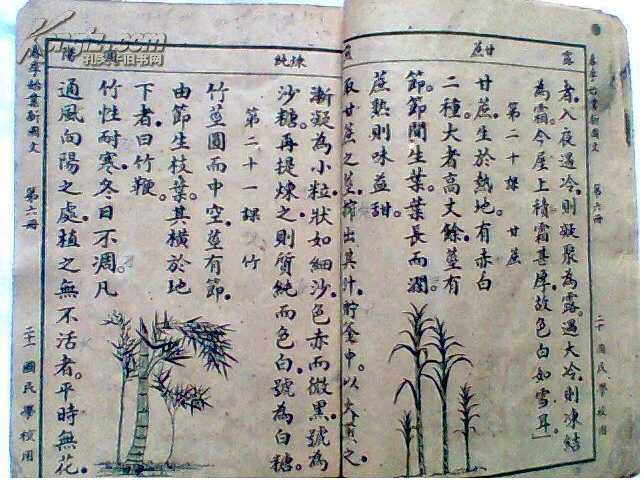 露
者入夜遇冷則凝聚為露遇大冷則凍結
為霜今屋上積霜甚厚故色白如雪耳」
第二十課 甘蔗
甘蔗生於熱地有赤白
二種大者高丈餘莖有
節節間生葉葉長而濶
蔗熟則味益甜
取甘蔗之莖搾出其汁貯釜中以火煑之
甘蔗
第六冊
二十 國民學校用
煉純
漸凝為小粒狀如細沙色赤而微黑號為
沙糖再提煉之則質純而色白號為白糖
第二十一課 竹
竹莖圓而中空莖有節
由節生枝葉其橫於地
下者曰竹鞭
竹性耐寒冬日不凋凡
通風向陽之處植之無不活者平時無花
陽
新國文
第六冊
二十一 國民學校用